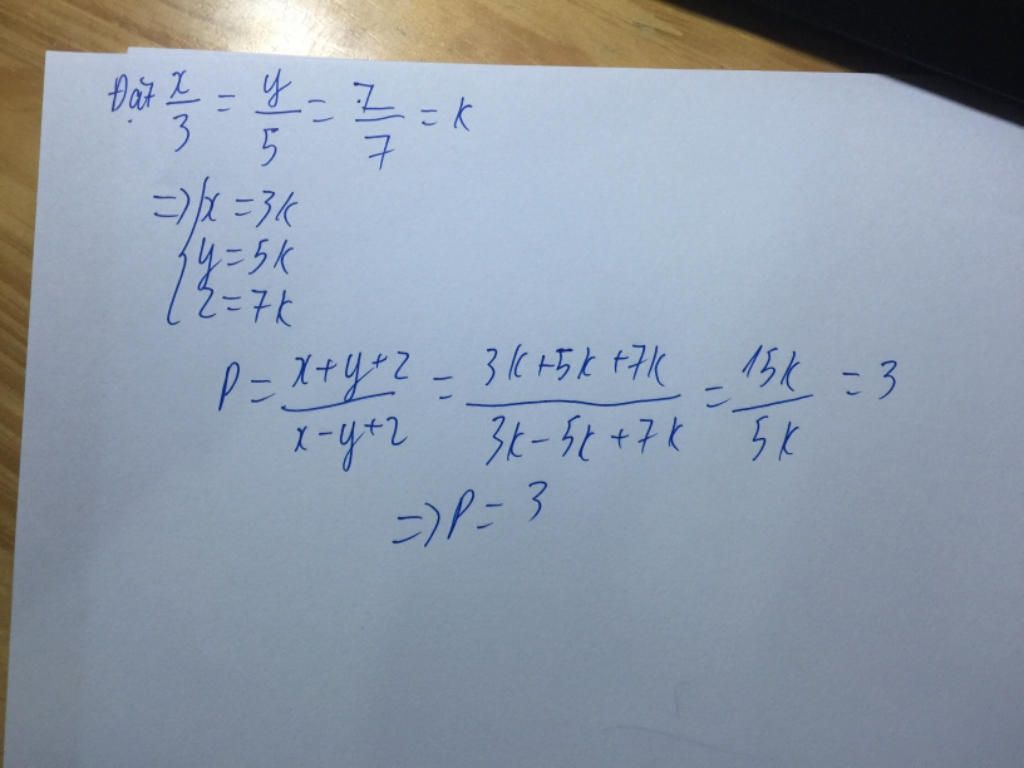 Đặt x/3 = y/5 = z/7 = k
=> { x = 3k
y = 5k
z = 7k
P = (x+y+z)/(x-y+z) = (3k+5k+7k)/(3k-5k+7k) = 15k/5k = 3
=> P = 3